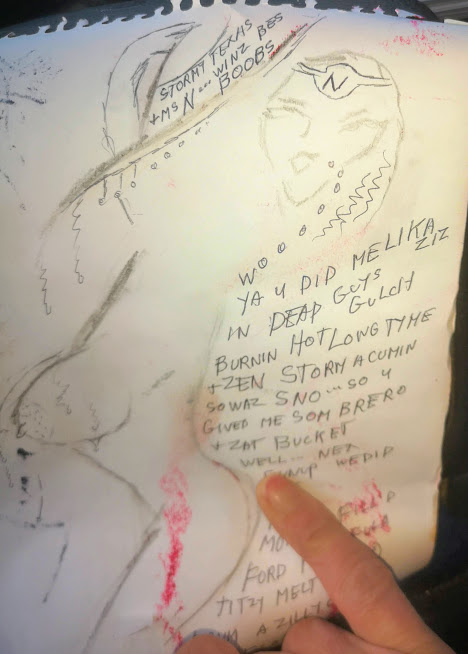 STORMY TEXAS
+ MS N... WINZ BES
BOOBS
N
WOOOO
YA U DID MELIKA
ZIZ
IN DEAD GUYS
GULCH
BURNIN HOT LONG TYME
+ ZEN STORM A CUMIN
SO WAZ SNO... SO U
GIVED ME SOM BRERO
+ ZAT BUCKET
WELL... NEX
WE DID
FORD
TITZY MELT
A ZILLY